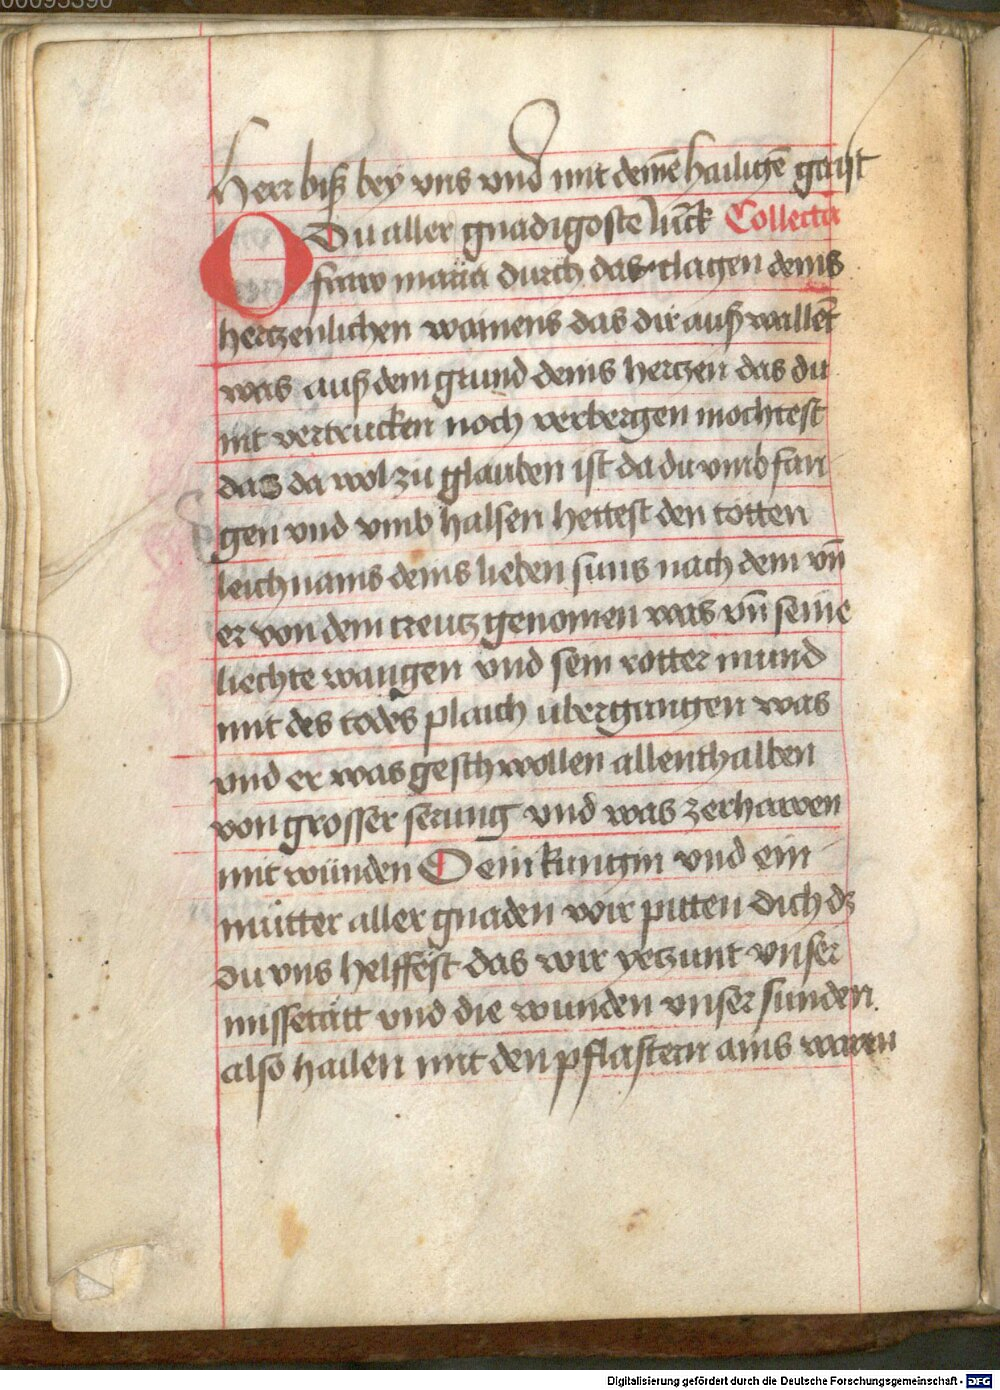 00095390
Herr biß bey vns vnd mit deinē hailigē gaist
O Du aller gnadigoste Junck Collecta
fraw maria durch das clagen deins
hertzenlichen wainens das dir auß wallēt
was auß dem grund deins hertzen das du
nit vertrucken noch verbergen mochtest
das da wol zu glauben ist da du vmb fan
gen vnd vmb halsen hettest den totten
leichnams deins lieben suns nach dem vn̄
er von dem creutz genomen was vn̄ seine
liechte wangen vnd sein rotter mund
mit des todes plaich ubergangen was
vnd er was geschwollen allenthalben
von grosser serung vnd was zerhawen
mit wunden O ein kungin vnd ein
mutter aller gnaden wir pitten dich dz
du vns helffest das wir yetzunt vnser
missetatt vnd die wunden vnser sunden
also hailen mit den pflastern ains waren
Digitalisierung gefördert durch die Deutsche Forschungsgemeinschaft - DFG